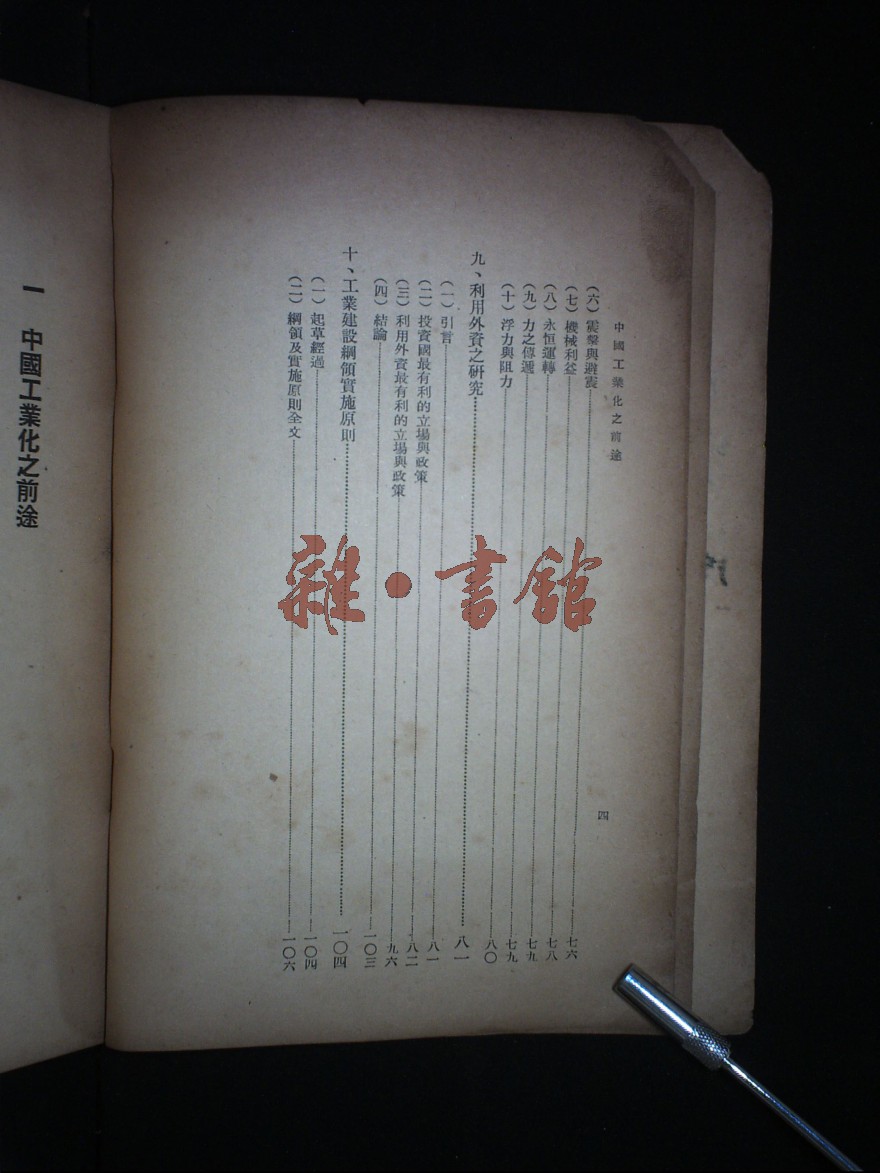 中國工業化之前途
四
(六)震擊與避震……七六
(七)機械利益……七八
(八)永恒運轉……七九
(九)力之傳遞……七九
(十)浮力與阻力……八〇
九、利用外資之硏究……八一
(一)引言……八一
(二)投資國最有利的立場與政策……八二
(三)利用外資最有利的立場與政策……九六
(四)結論……一〇三
十、工業建設綱領實施原則……一〇四
(一)起草經過……一〇四
(二)綱領及實施原則全文……一〇六
一 中國工業化之前途
雜·書館